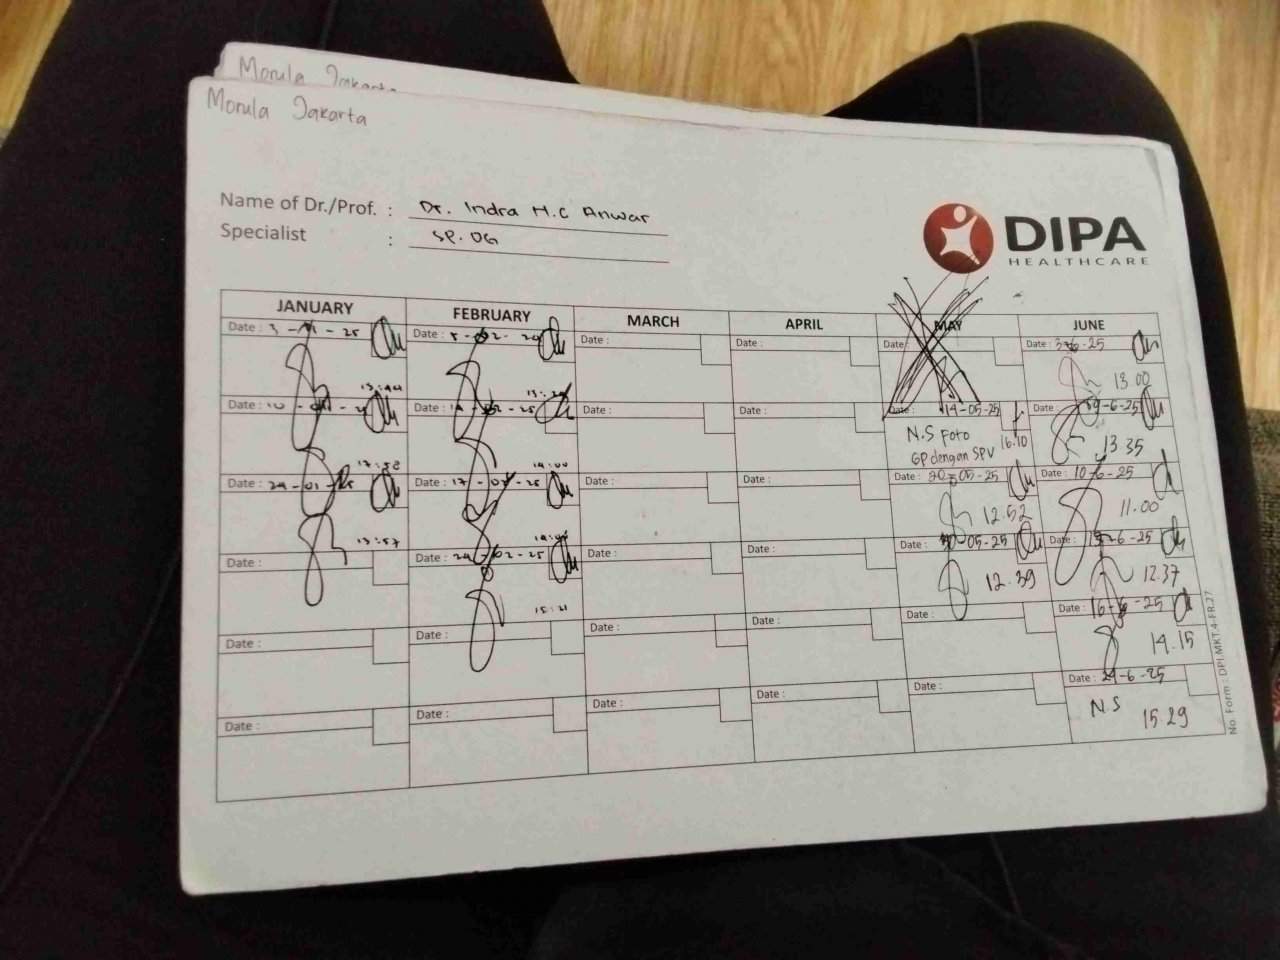 Morula Jakarta
Morula Jakarta
Name of Dr./Prof. : Dr. Indra H.C Anwar
Specialist : SP. OG
DIPA
HEALTHCARE
JANUARY FEBRUARY MARCH APRIL MAY JUNE
Date : 3 - 01 - 25 Date : 5 - 02 - Date : Date : Date : Date : 3-6-25
13:44 13.00
Date : 10 - Date : - 02 - 25 Date : Date : Date : 14-05-25 Date : 09-6-25
17:52 14:00 N.S Foto 16.10 13.35
GP dengan SPV
Date : 24 - 01 - 25 Date : 17 - 02 - 25 Date : Date : Date : 20-05-25 Date : 10-6-25
13:57 12.52 11.00
Date : Date : 24 - 02 - 25 Date : Date : Date : 05-25 Date : -6-25
15:21 12.39 12.37
Date : Date : Date : Date : Date : Date : 16-6-25
14.15
Date : Date : Date : Date : Date : Date : 24-6-25
N.S 15.29
No. Form : DPI.MKT.4-FR.27